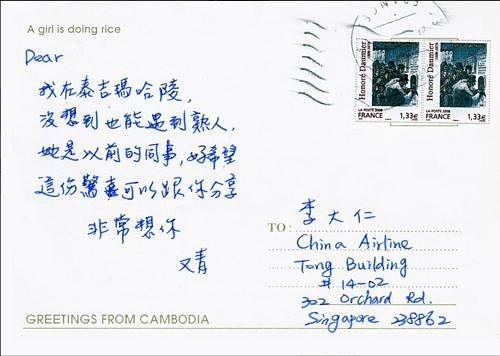 A girl is doing rice
Dear
我在泰吉瑪哈陵,
沒想到也能遇到熟人,
她是以前的同事,好希望
這份驚喜可以跟你分享
非常想你
又青
Honoré Daumier
1808-1879
LA POSTE 2008
FRANCE
1,33€
Honoré Daumier
1808-1879
LA POSTE 2008
FRANCE
1,33€
TO:
李大仁
China Airline
Tong Building
#14-02
302 Orchard Rd.
Singapore 238862
GREETINGS FROM CAMBODIA